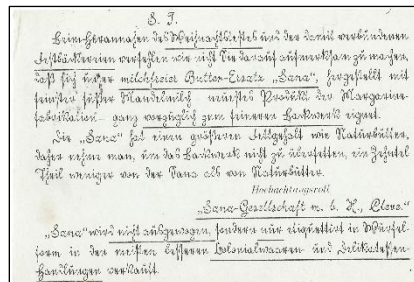 P. P.
Beim Herannahen des Weihnachtsfestes und der damit verbundenen
Festbäckereien verfehlen wir nicht Sie darauf aufmerksam zu machen,
daß sich unser milchfreier Butter-Ersatz „Sana“, hergestellt mit
feinster süßer Mandelmilch neuestes Produkt der Margarine-
fabrikation ganz vorzüglich zum feineren Backwerk eignet.
Die „Sana“ hat einen größeren Fettgehalt wie Naturbutter,
daher nehme man, um das Backwerk nicht zu überfetten, ein Zehntel
Theil weniger von der Sana als von Naturbutter.
Hochachtungsvoll
„Sana-Gesellschaft m. b. H., Cleve.“
„Sana“ wird nicht ausgewogen, sondern nur etiquettirt in Würfel-
form in den meisten besseren Colonialwaaren und Delikatessen-
Handlungen verkauft.